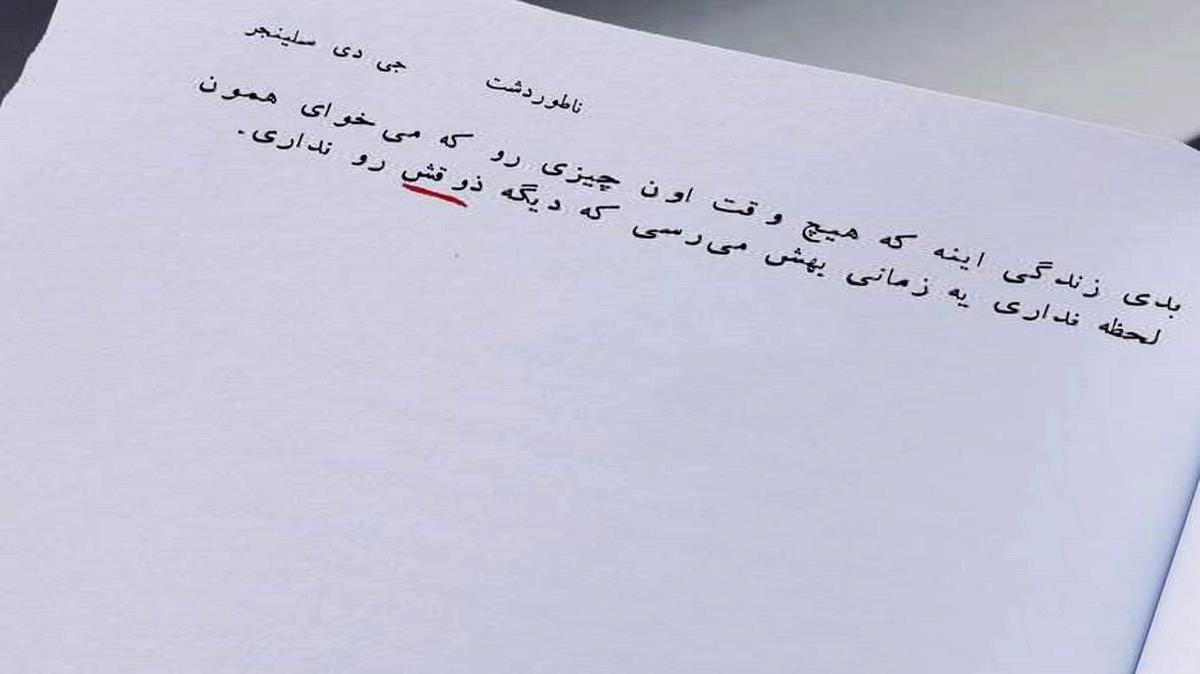 ناطوردشت جی دی سلینجر
بدی زندگی اینه که هیچ وقت اون چیزی رو که می‌خوای همون
لحظه نداری یه زمانی بهش می‌رسی که دیگه ذوقش رو نداری.